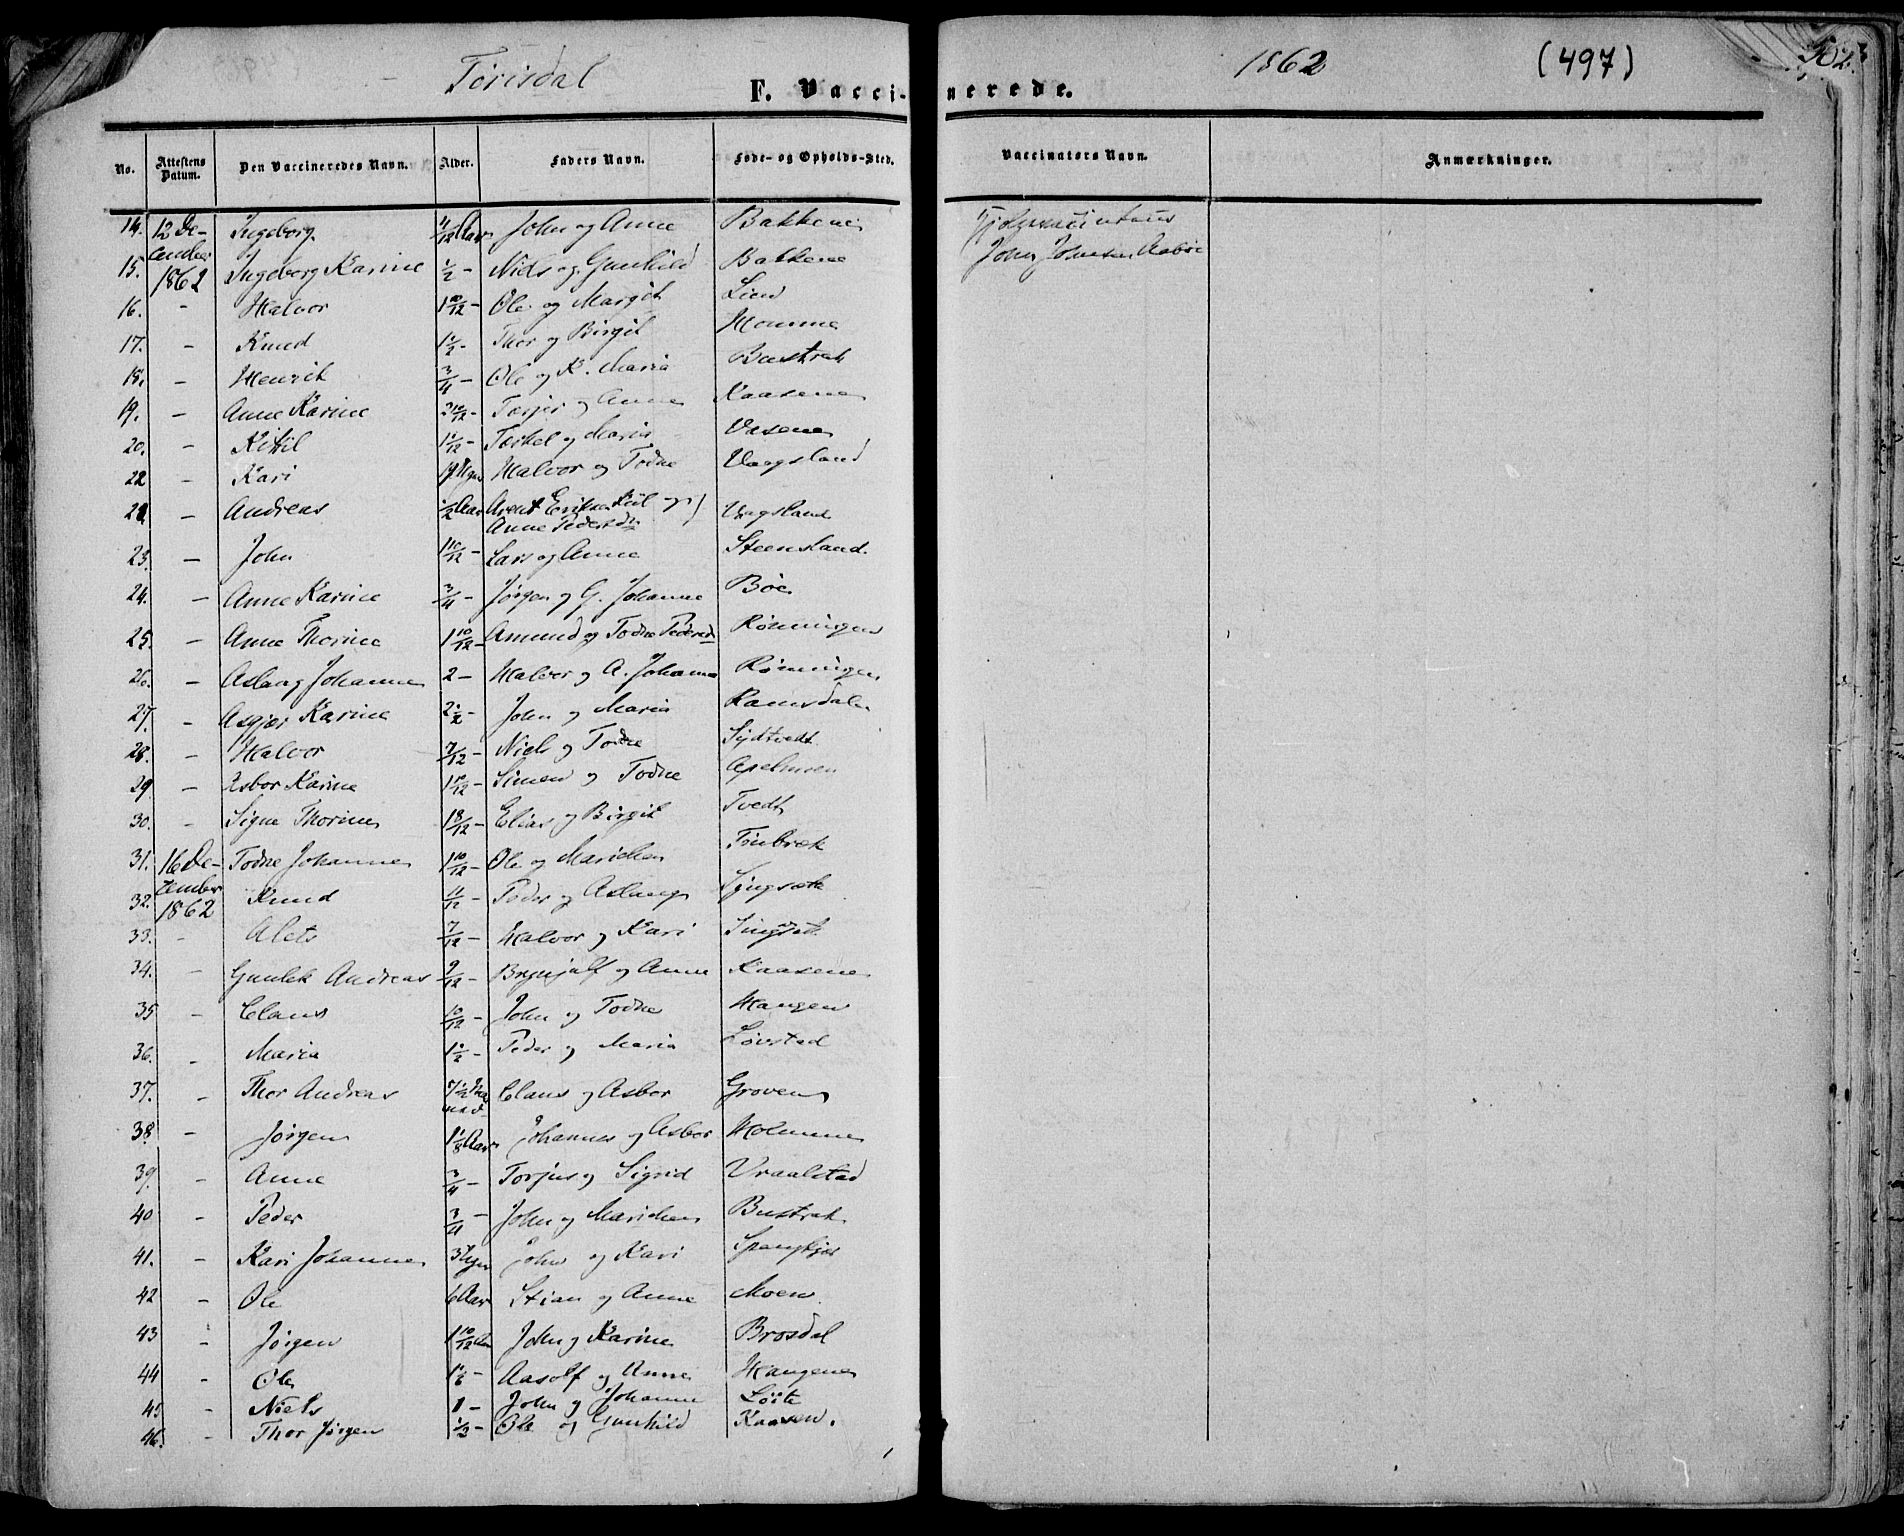 Törisdal 1862 (497) 502.
F. Vaccinerede.
No. Attestens Datum. Den Vaccineredes Navn. Alder. Faders Navn. Føde- og Opholds-Sted. Vaccinators Navn. Anmærkninger.
14. 12 De- Ingeborg 11/12 Aar John og Anne Bakkene
cember
15. 1862 Ingeborg Karine 1/2 - Niels og Gunhild Bakkene John Johnsen
16. - Halvor 1 10/12 - Ole og Margit Lien
17. - Knud 1 1/2 - Thor og Birgit Homme
18. - Henrik 3/4 - Ole og K. Maria Bustrak
19. - Anne Karine 2 10/12 - Terjer og Anne Kaasene
20. - Kittil 1 1/12 - Terkel og Maria Vasene
22 - Kari Halvor og Todne Vaagsland
21. - Andreas 1/2 Aar Arent Eriksen og
Anne Pedersdr Vagsland
23. - John 1 10/12 - Lars og Anne Steensland.
24. - Anne Karine 3/4 - Jørgen og G. Johanne Böe
25. - Anne Thorine 1 10/12 - Amund og Todne Pedersd Rönningen
26. - Aslaug Johanne 2 - Halvor og A. Johanne Rönningen
27. - Asgjer Karine 2 1/2 - John og Maria Ramsdalen
28. - Halvor 7/12 - Niels og Todne Sydtvedt
29 - Asbor Karine 1 10/12 - Simen og Todne Apelmoen
30. - Signe Thorine 1 8/12 - Elias og Birgit Tvedt
31. 16 De- Todne Johanne 1 10/12 - Ole og Marichen
cember
32. 1862 Knud 11/12 - Peder og Aslaug
33. - Alets 7/12 - Halvor og Kari
34. - Gunlek Andreas 9/12 - Brynjulf og Anne Kaasene
35 - Claus 10/12 - John og Todne Haugen
36. - Maria 1 1/2 - Peder og Maria Lövstad
37. - Thor Andreas 7 1/2 Claus og Asbor Groven
38. - Jørgen 1 1/8 Aar Johannes og Asbor Homme
39. - Anne 3/4 - Torjus og Sigrid Vraalstad
40 - Peder 3/4 - John og Marichen Bustrak
41. - Kari Johanne 3 Uger John og Kari
42 - Ole 6 Aar Stian og Anne Moen
43 - Jørgen 1 10/12 John og Karine Brosdal
44 - Ole 1 1/6 - Aasolf og Anne Haugene
45 - Niels 1 - John og Johanne
46. - Thor Jørgen 1/2 - Ole og Gunhild Kaasen.